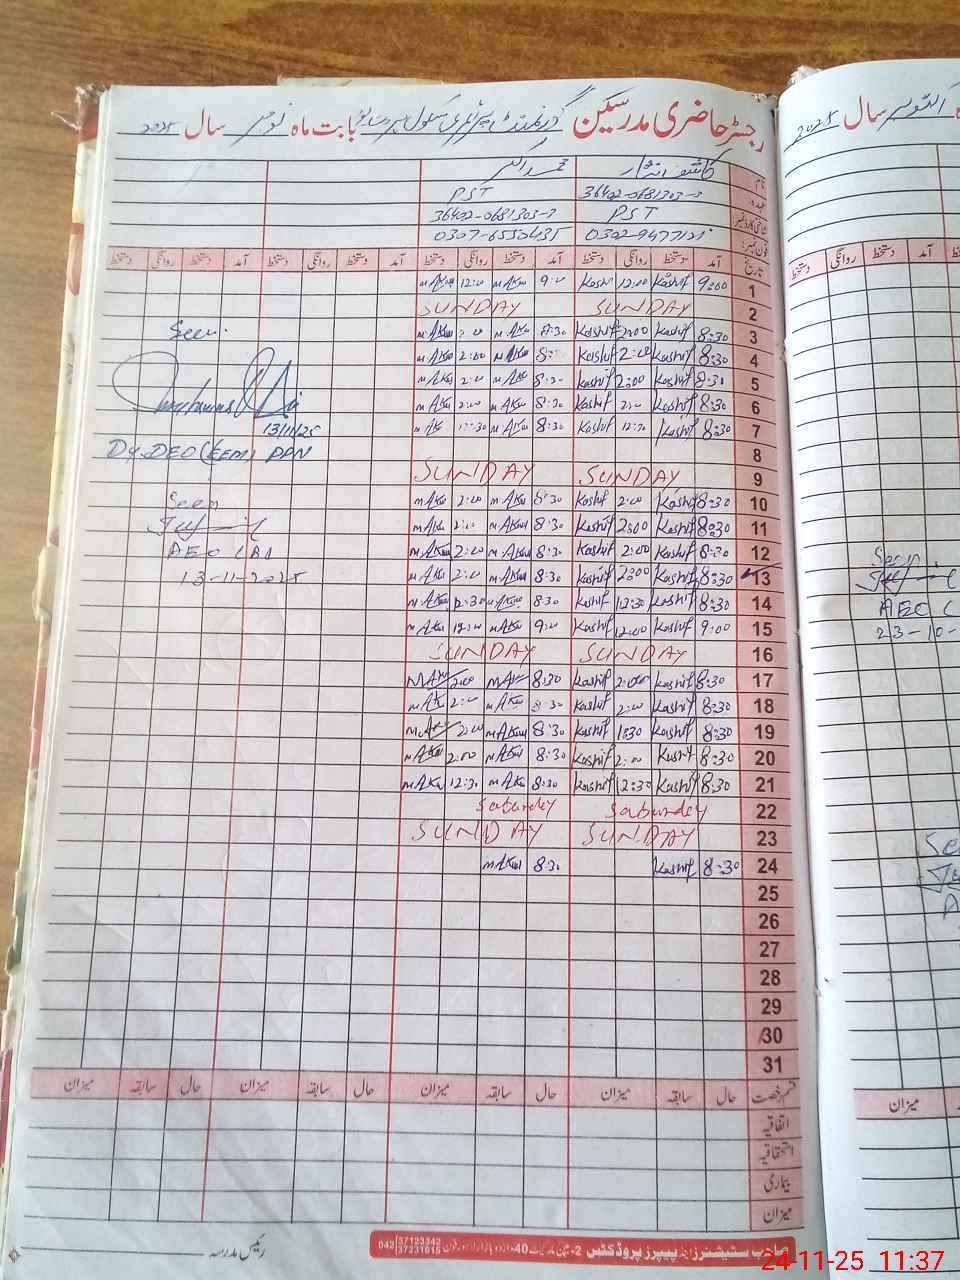 رجسٹر حاضری مدرسین گورنمنٹ پرائمری سکول بابت ماہ نومبر سال
نام کاشف محمد اکبر
عہدہ 36402-0681303-3 PST
شناختی کارڈ نمبر PST 36402-0681303-3
فون نمبر 0302-9477121 0307-6550435
تاریخ آمد دستخط روانگی دستخط آمد دستخط روانگی دستخط آمد دستخط روانگی دستخط آمد دستخط روانگی دستخط
1 9:00 Kashif 12:00 Kashif 9:00 mAkm 12:00 mAkm
2 SUNDAY SUNDAY
3 8:30 Kashif 2:00 Kashif 8:30 mAkm 2:00 mAkm
4 8:30 Kashif 2:00 Kashif 8:30 mAkm 2:00 mAkm
5 8:30 Kashif 2:00 Kashif 8:30 mAkm 2:00 mAkm
6 8:30 Kashif 2:00 Kashif 8:30 mAkm 2:00 mAkm
7 8:30 Kashif 12:30 Kashif 8:30 mAkm 12:30 mAk
8
9 SUNDAY SUNDAY
10 8:30 Kashif 2:00 Kashif 8:30 mAkm 2:00 mAkm
11 8:30 Kashif 2:00 Kashif 8:30 mAkm 2:00 mAkm
12 8:30 Kashif 2:00 Kashif 8:30 mAkm 2:00 mAkm
13 8:30 Kashif 2:00 Kashif 8:30 mAkm 2:00 mAkm
14 8:30 Kashif 12:30 Kashif 8:30 mAkm 12:30 mAkm
15 9:00 Kashif 12:00 Kashif 9:00 mAkm 12:00 mAkm
16 SUNDAY SUNDAY
17 8:30 Kashif 2:00 Kashif 8:30 2:00
18 8:30 Kashif 2:00 Kashif 8:30 mAkm 2:00 mAkm
19 8:30 Kashif 1:30 Kashif 8:30 mAkm 2:00
20 8:30 Kashif 2:00 Kashif 8:30 mAkm 2:00 mAkm
21 8:30 Kashif 12:30 Kashif 8:30 mAkm 12:30 mAkm
22 Saturday Saturday
23 SUNDAY SUNDAY
24 8:30 Kashif 8:30 mAkm
25
26
27
28
29
30
31
Seen.
13/11/25
Dy.DEO (EEM) PPN
Seen
AEO
13-11-2025
قسم رخصت حال سابقہ میزان حال سابقہ میزان حال سابقہ میزان حال سابقہ میزان
اتفاقیہ
استحقاقیہ
بیماری
میزان
رئیس مدرسہ
سٹیشنرز اینڈ پیپرز پروڈکٹس
042 37123342
37231015
اکتوبر سال
دستخط روانگی دستخط
Seen
AEO
23-10-
میزان
24-11-25 11:37